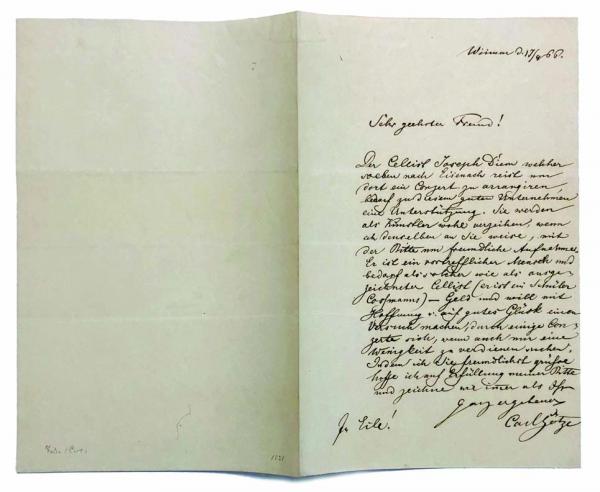 Weimar d. 17/4 66.
Sehr geehrter Freund!
Der Cellist Joseph Diem welcher
soeben nach Eisenach reist um
dort ein Conzert zu arrangiren,
bedarf zu diesem guten Unternehmen
eine Unterstützung. Sie werden
als Künstler wohl verzeihen, wenn
ich denselben an Sie weise, mit
der Bitte um freundliche Aufnahme.
Er ist ein vortrefflicher Mensch und
bedarf als solcher wie als ausge-
zeichneter Cellist (er ist ein Schüler
Cossmanns) – Geld und will mit
Hoffnung u. auf gutes Glück einen
Versuch machen, durch einige Con-
zerte sich, wenn auch nur eine
Wenigkeit zu verdienen suchen.
Indem ich Sie freundlichst grüße
hoffe ich auf Erfüllung meiner Bitte
und zeichne wie immer als Ihr
ganz ergebener
In Eile!
Carl Götze
1121